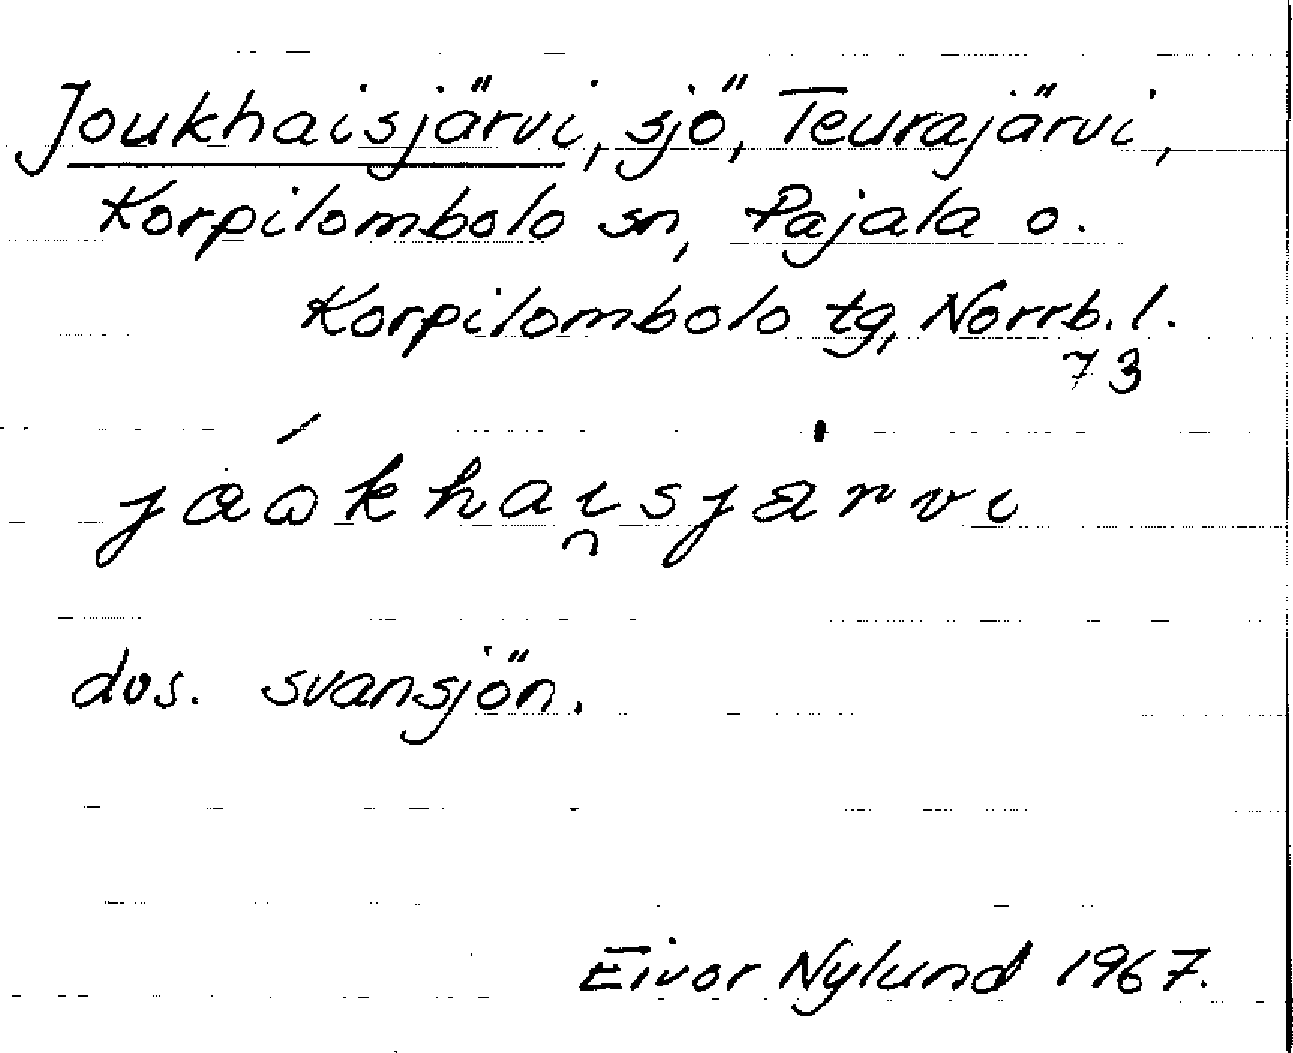 Joukhaisjärvi, sjö, Teurajärvi,
Korpilombolo sn, Pajala o.
Korpilombolo tg, Norrb. l.
73
dvs. svansjön.
Eivor Nylund 1967.